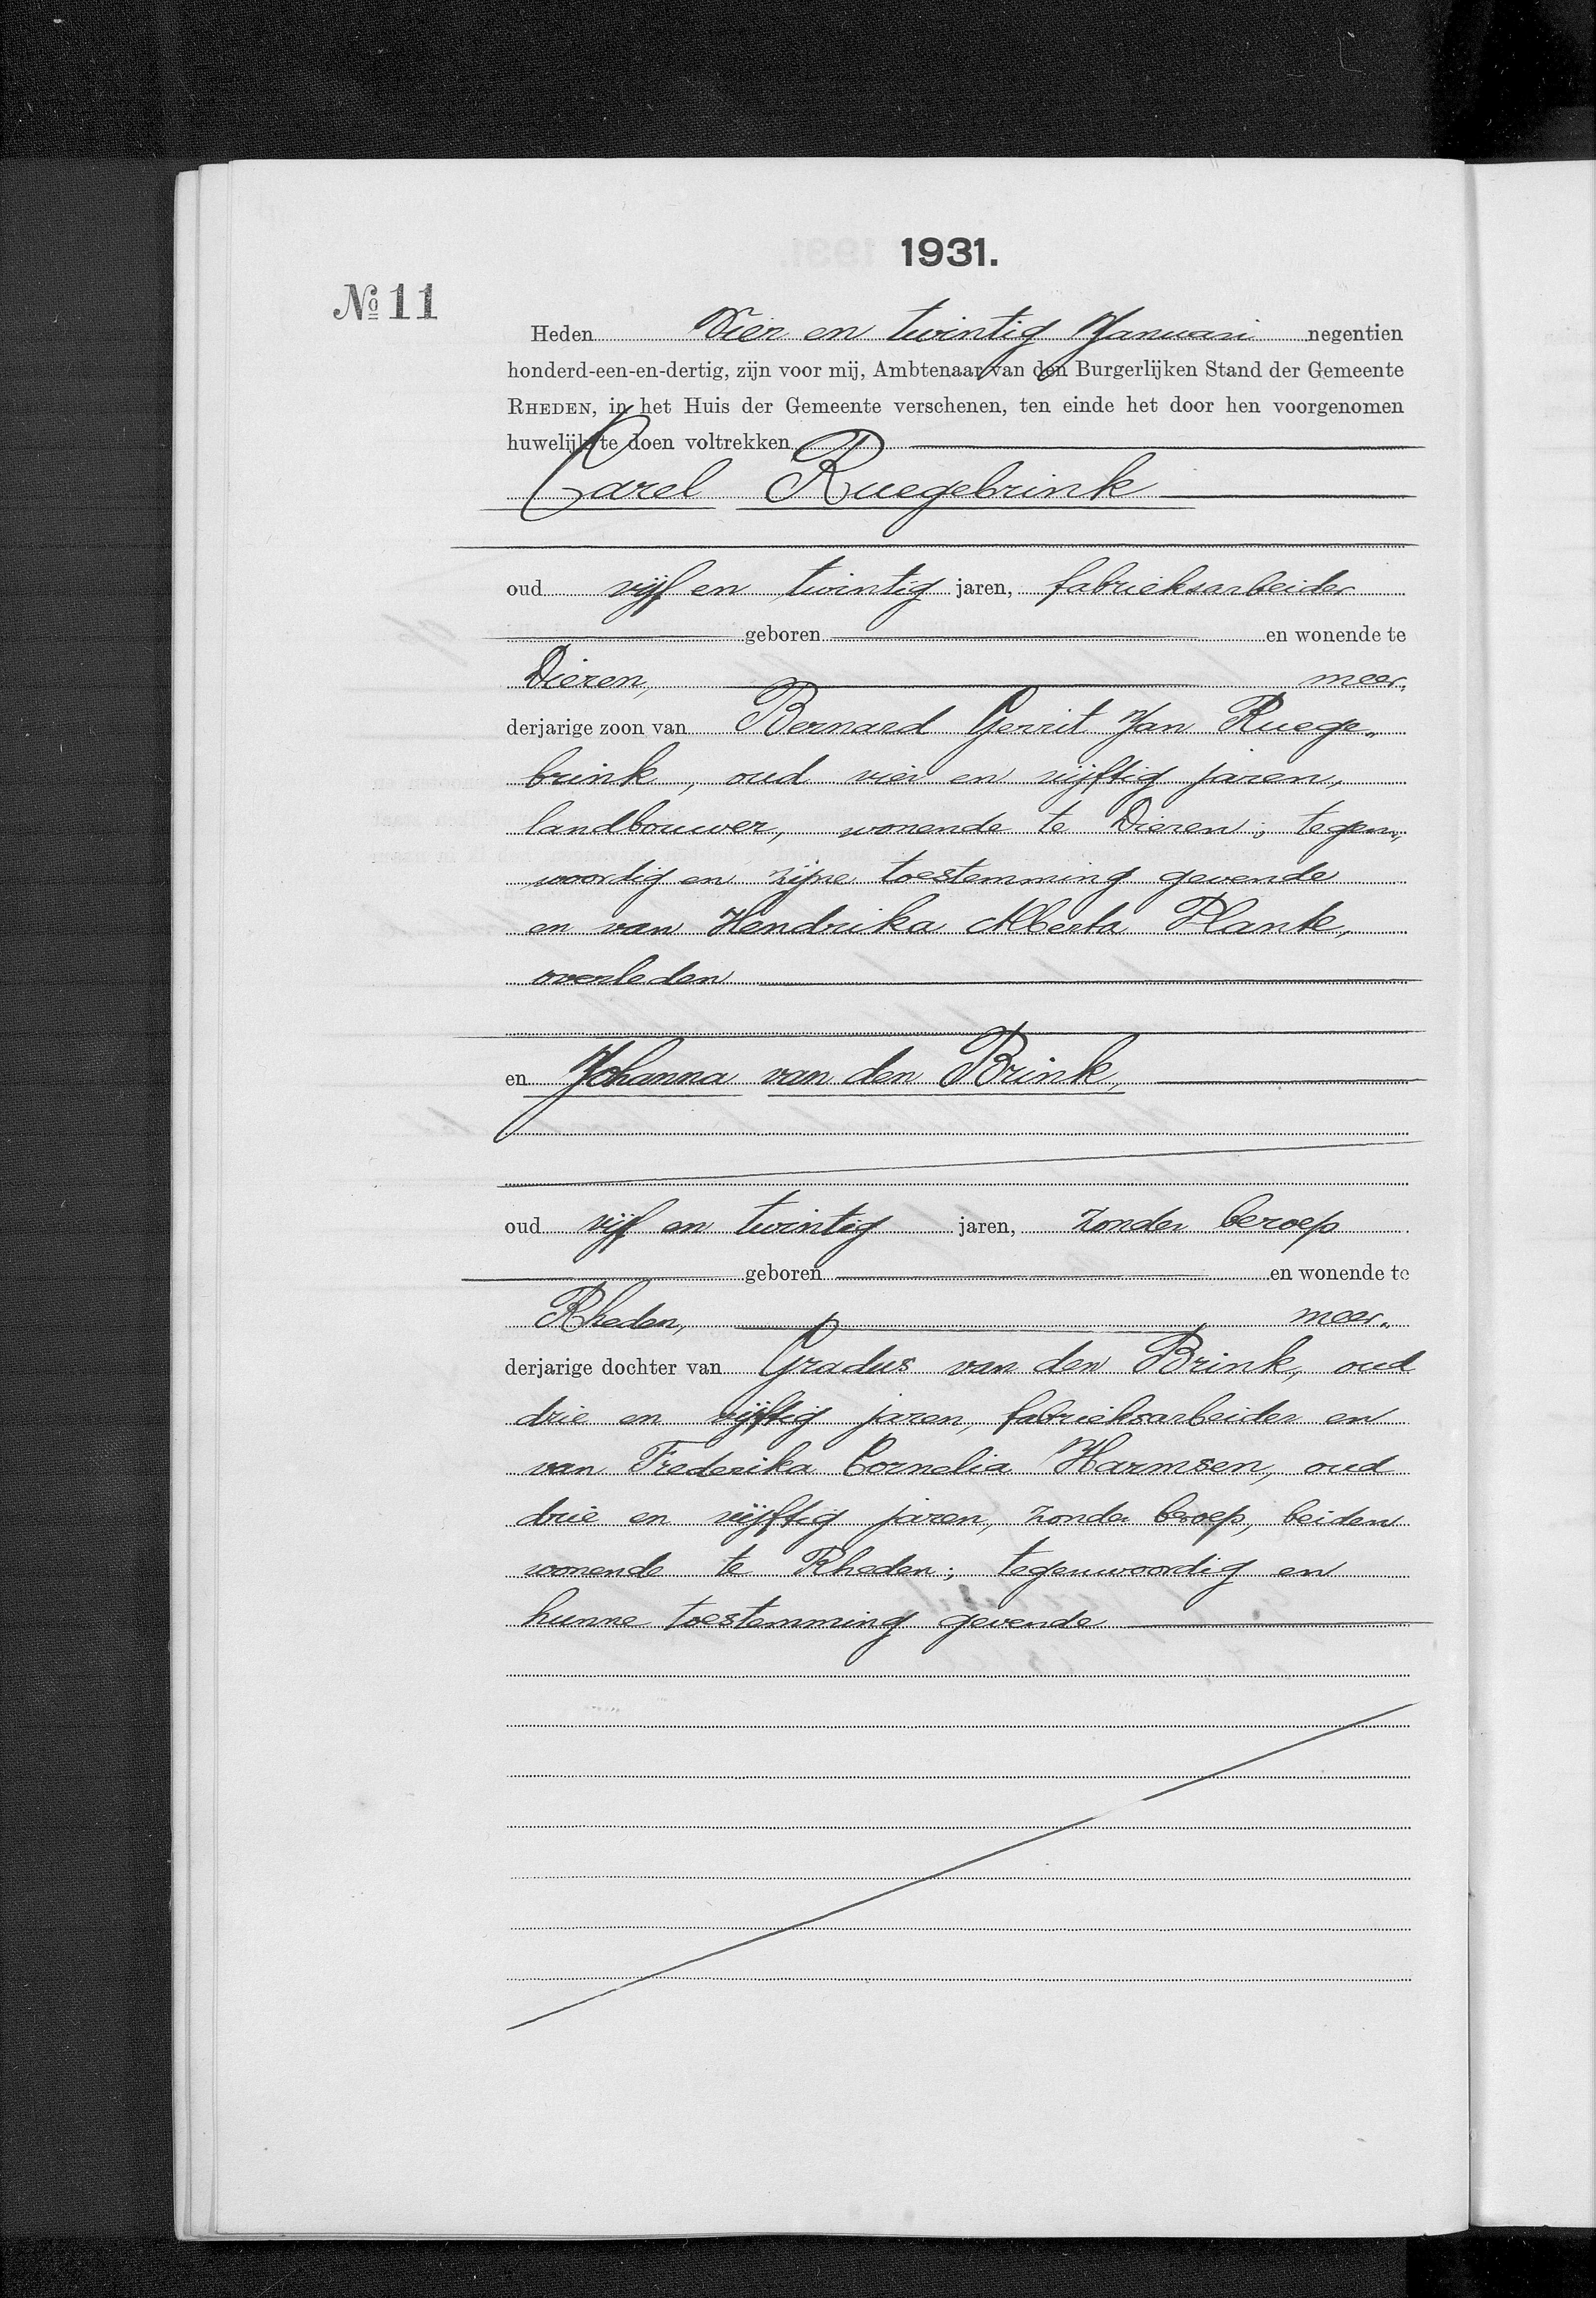 1931.
№ 11
Heden Vier en twintig Januari negentien
honderd-een-en-dertig, zijn voor mij, Ambtenaar van den Burgerlijken Stand der Gemeente
RHEDEN, in het Huis der Gemeente verschenen, ten einde het door hen voorgenomen
huwelijk te doen voltrekken
Carel Ruegebrink
oud vijf en twintig jaren, fabrieksarbeider
geboren en wonende te
Dieren, meer„
derjarige zoon van Bernard Gerrit Jan Ruege„
brink, oud vier en vijftig jaren,
landbouwer, wonende te Dieren; tegen„
woordig en zijne toestemming gevende
en van Hendrika Alberta Plank,
overleden
en Johanna van den Brink,
oud vijf en twintig jaren, zonder beroep
geboren en wonende te
Rheden, meer„
derjarige dochter van Gradus van den Brink, oud
drie en vijftig jaren, fabrieksarbeider en
van Frederika Cornelia Harmsen, oud
drie en vijftig jaren, zonder beroep, beiden
wonende te Rheden; tegenwoordig en
hunne toestemming gevende